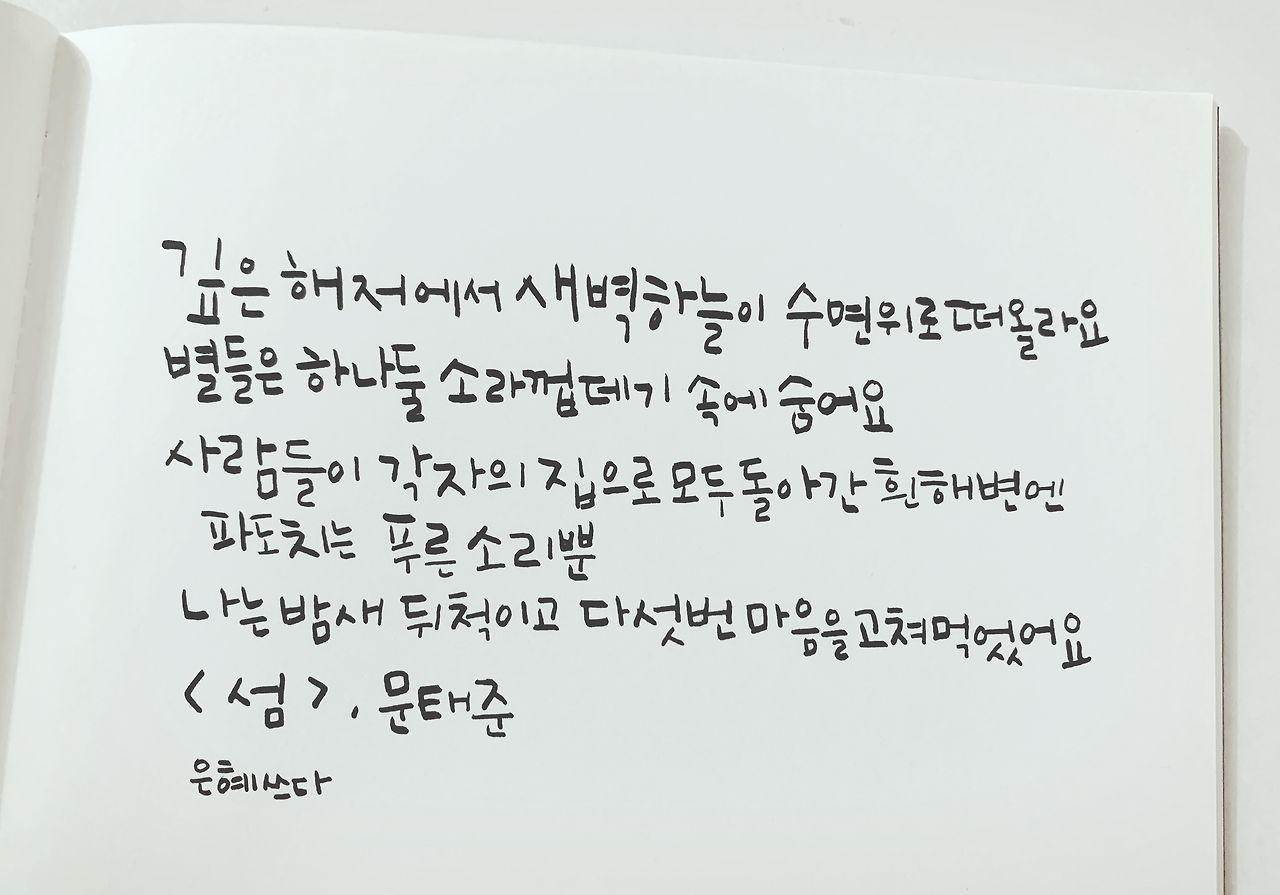 깊은 해저에서 새벽하늘이 수면위로 떠올라요
별들은 하나둘 소라껍데기 속에 숨어요
사람들이 각자의 집으로 모두 돌아간 흰 해변엔
파도치는 푸른 소리뿐
나는 밤새 뒤척이고 다섯번 마음을 고쳐먹었어요
<섬>, 문태준
은혜쓰다